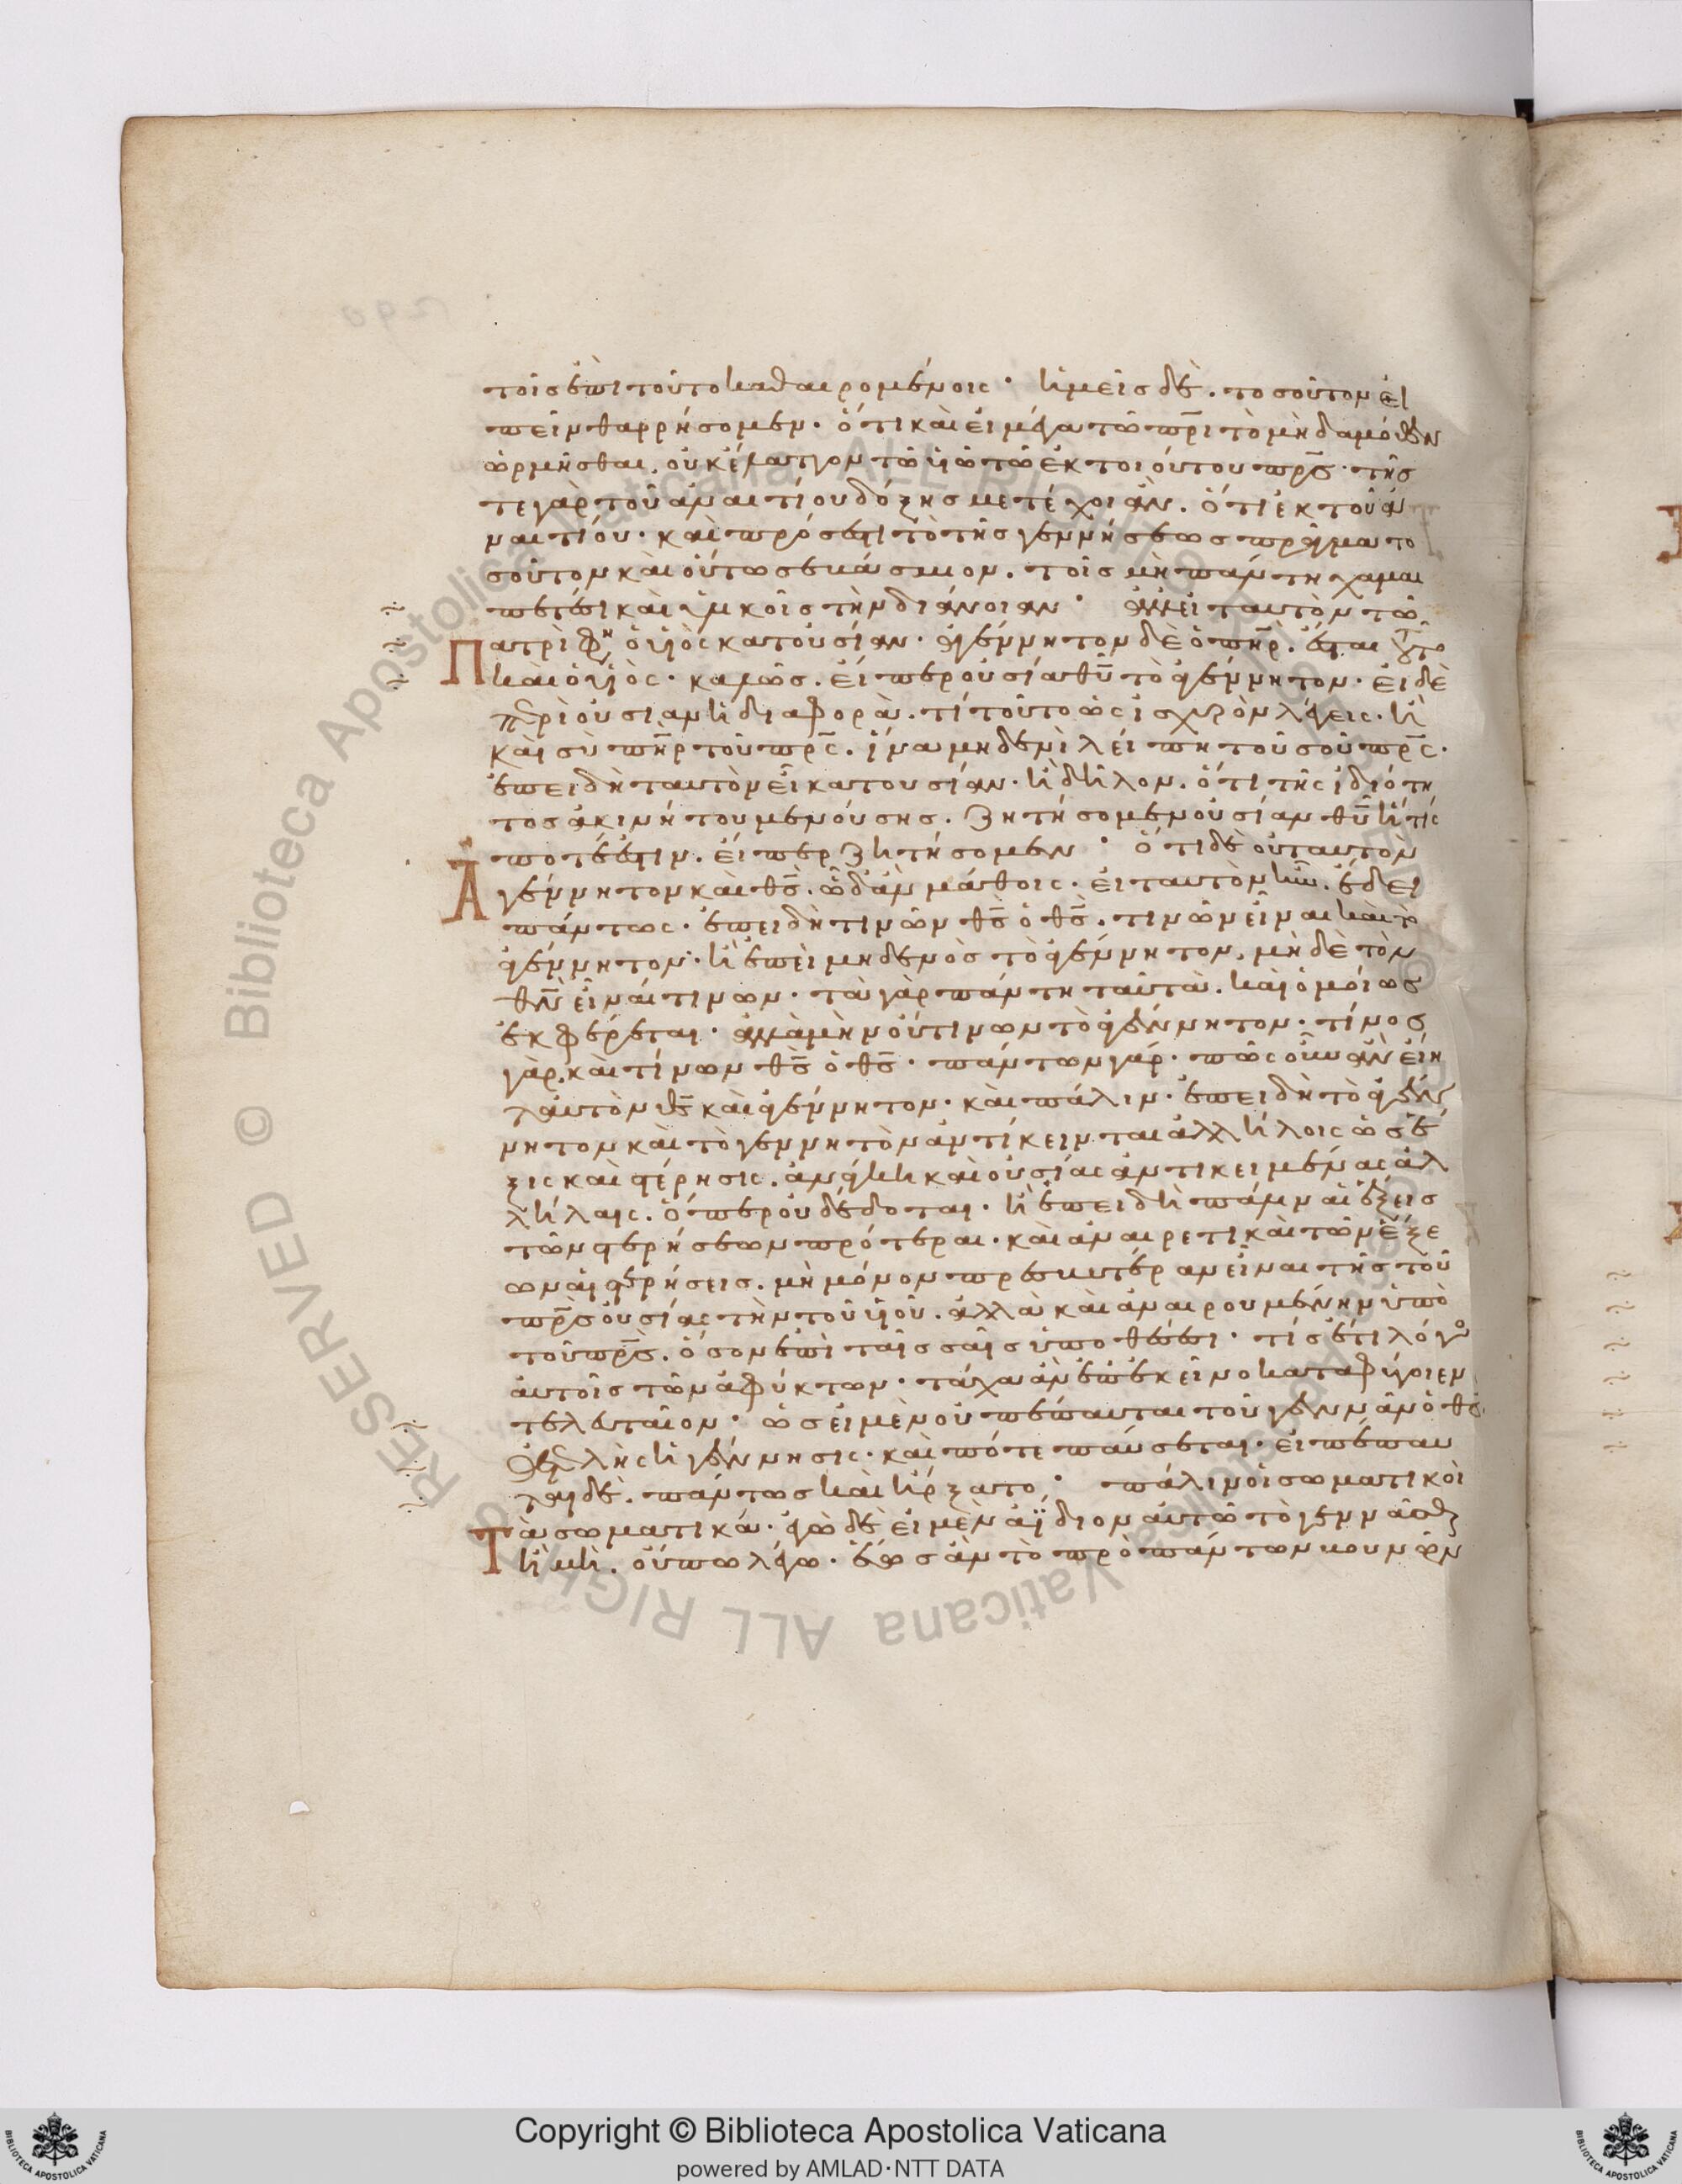 τοῖς ἐπὶ τοῦτο καθαιρομένοις· ἡμεῖς δὲ. τοσοῦτον εἰ
πεῖν θαρρήσομεν. ὅτι καὶ εἰ μέγα τῶ πρι τὸ μηδαμόθεν
ὡρμῆσθαι, οὐκ ἔλαττον τῶ υἱῶ τῶ ἐκ τοιούτου πρς· τῆς
τε γὰρ τοῦ ἀναιτίου δόξης μετέχοι ἂν. ὅτι ἐκ τοῦ ἀ
ναιτίου· καὶ πρόσεστι τὸ τῆς γεννήσεως πρᾶγμα το
σοῦτον καὶ οὕτω σεβάσμιον. τοῖς μὴ πάντη χαμαι
πετέσι καὶ ὑλικοῖς τὴν διάνοιαν· ἀλλ εἰ ταυτὸν τῶ
Πατρὶ φη, ὁ υἱός κατουσίαν· ἀγέννητον δὲ ὁ πηρ. ἔσται τοῦτο
καὶ ὁ υἱὸς· καλῶς. εἴπερ οὐσία θυ τὸ ἀγέννητον· εἰ δὲ
περὶ οὐσίαν ἡ διαφορὰ. τί τοῦτο ὡς ἰσχυρὸν λέγεις· ἢ
καὶ σὺ πηρ τοῦ πρς. ἵνα μηδενὶ λείπη τοῦ σοῦ πρς·
ἐπειδὴ ταυτὸν εἶ κατουσίαν· ἢ δῆλον. ὅτι τῆς ἰδιότη
τος ἀκινήτου μενούσης. ζητήσομεν οὐσίαν θυ ἥτις
ποτέ ἐστιν. εἴπερ ζητήσομεν· ὅτι δὲ οὐ ταυτὸν
Ἀγέννητον καὶ θς. ὧδ ἂν μάθοις· εἰ ταυτὸν ἦν. ἔδει
πάντως· ἐπειδὴ τινῶν θς ὁ θς. τινῶν εἶναι καὶ τὸ
ἀγέννητον· ἢ ἐπεὶ μηδενὸς τὸ ἀγέννητον, μηδὲ τὸν
θν εἶναί τινων· τὰ γὰρ πάντη ταὐτὰ. καὶ ὁμοίως
ἐκφέρεται· ἀλλὰ μὴν οὔ τινων τὸ ἀγέννητον· τίνος
γὰρ. καὶ τίνων θς ὁ θς· πάντων γάρ· πῶς οὖν ἂν εἴη
ταὐτὸν θς καὶ ἀγέννητον· καὶ πάλιν· ἐπειδὴ τὸ ἀγέν
νητον καὶ τὸ γεννητὸν ἀντίκεινται ἀλλήλοις ὡς ἕ
ξις καὶ στέρησις. ἀνάγκη καὶ οὐσίας ἀντικειμένας ἀλ
λήλαις. ὅπερ οὐ δέδοται· ἢ ἐπειδὴ πάλιν αἱ ἕξεις
τῶν στερήσεων πρότεραι· καὶ ἀναιρετικαὶ τῶν ἕξε
ων αἱ στερήσεις. μὴ μόνον πρεσβυτέραν εἶναι τῆς τοῦ
πρς οὐσίας τὴν τοῦ υἱοῦ. ἀλλὰ καὶ ἀναιρουμένην ὑπὸ
τοῦ πρς. ὅσον ἐπὶ ταῖς σαῖς ὑποθέσεσι· τίς ἔτι λόγος
αὐτοῖς τῶν ἀφύκτων· τάχα ἂν ἐπ ἐκεῖνο καταφύγοιεν
τελευταῖον· ὡς εἰ μὲν οὐ πέπαυται τοῦ γεννᾶν ὁ θς.
ἀτελὴς ἡ γέννησις· καὶ πότε παύσεται· εἰ πέπαυ
ται δὲ. πάντως καὶ ἤρξατο· πάλιν οἱ σωματικοὶ
Τὰ σωματικά· ἐγὼ δὲ εἰ μὲν ἀΐδιον αὐτῶ τὸ γεννᾶσθαι
ἢ μὴ. οὔπω λέγω· ἕως ἂν τὸ πρὸ πάντων βουνῶν
Copyright © Biblioteca Apostolica Vaticana
powered by AMLAD·NTT DATA